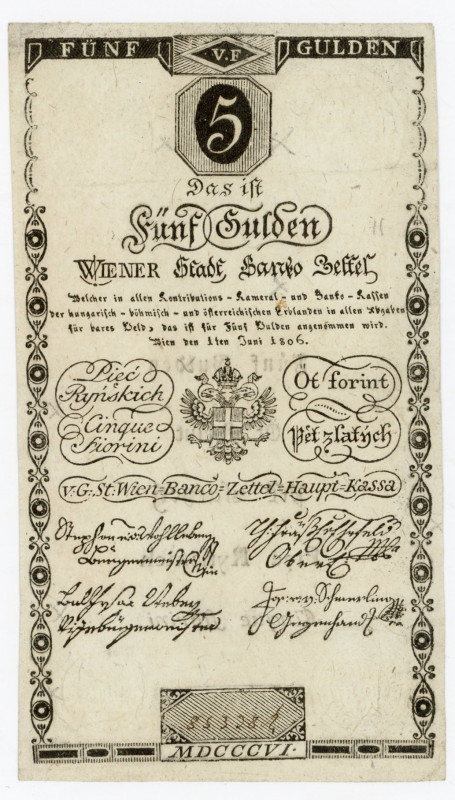 FÜNF V.F GULDEN
5
Das ist
Fünf Gulden
WIENER Stadt Banko Zettel
Welcher in allen Kontributions - Kameral - und Banko - Kassen
der hungarisch - böhmisch - und österreichischen Erblanden in allen Abgaben
für bares Geld, das ist für Fünf Gulden angenommen wird.
Wien den 1ten Juni 1806.
Pięć
Ryńskich
Öt forint
Cinque
Fiorini
Pět zlatých
V. G: St: Wien=Banco=Zettel=Haupt=Kassa
Stephan
Burgermeister
Vizebürgermeister
Jos: v: Schmerling
Gegenhand
MDCCCVI.